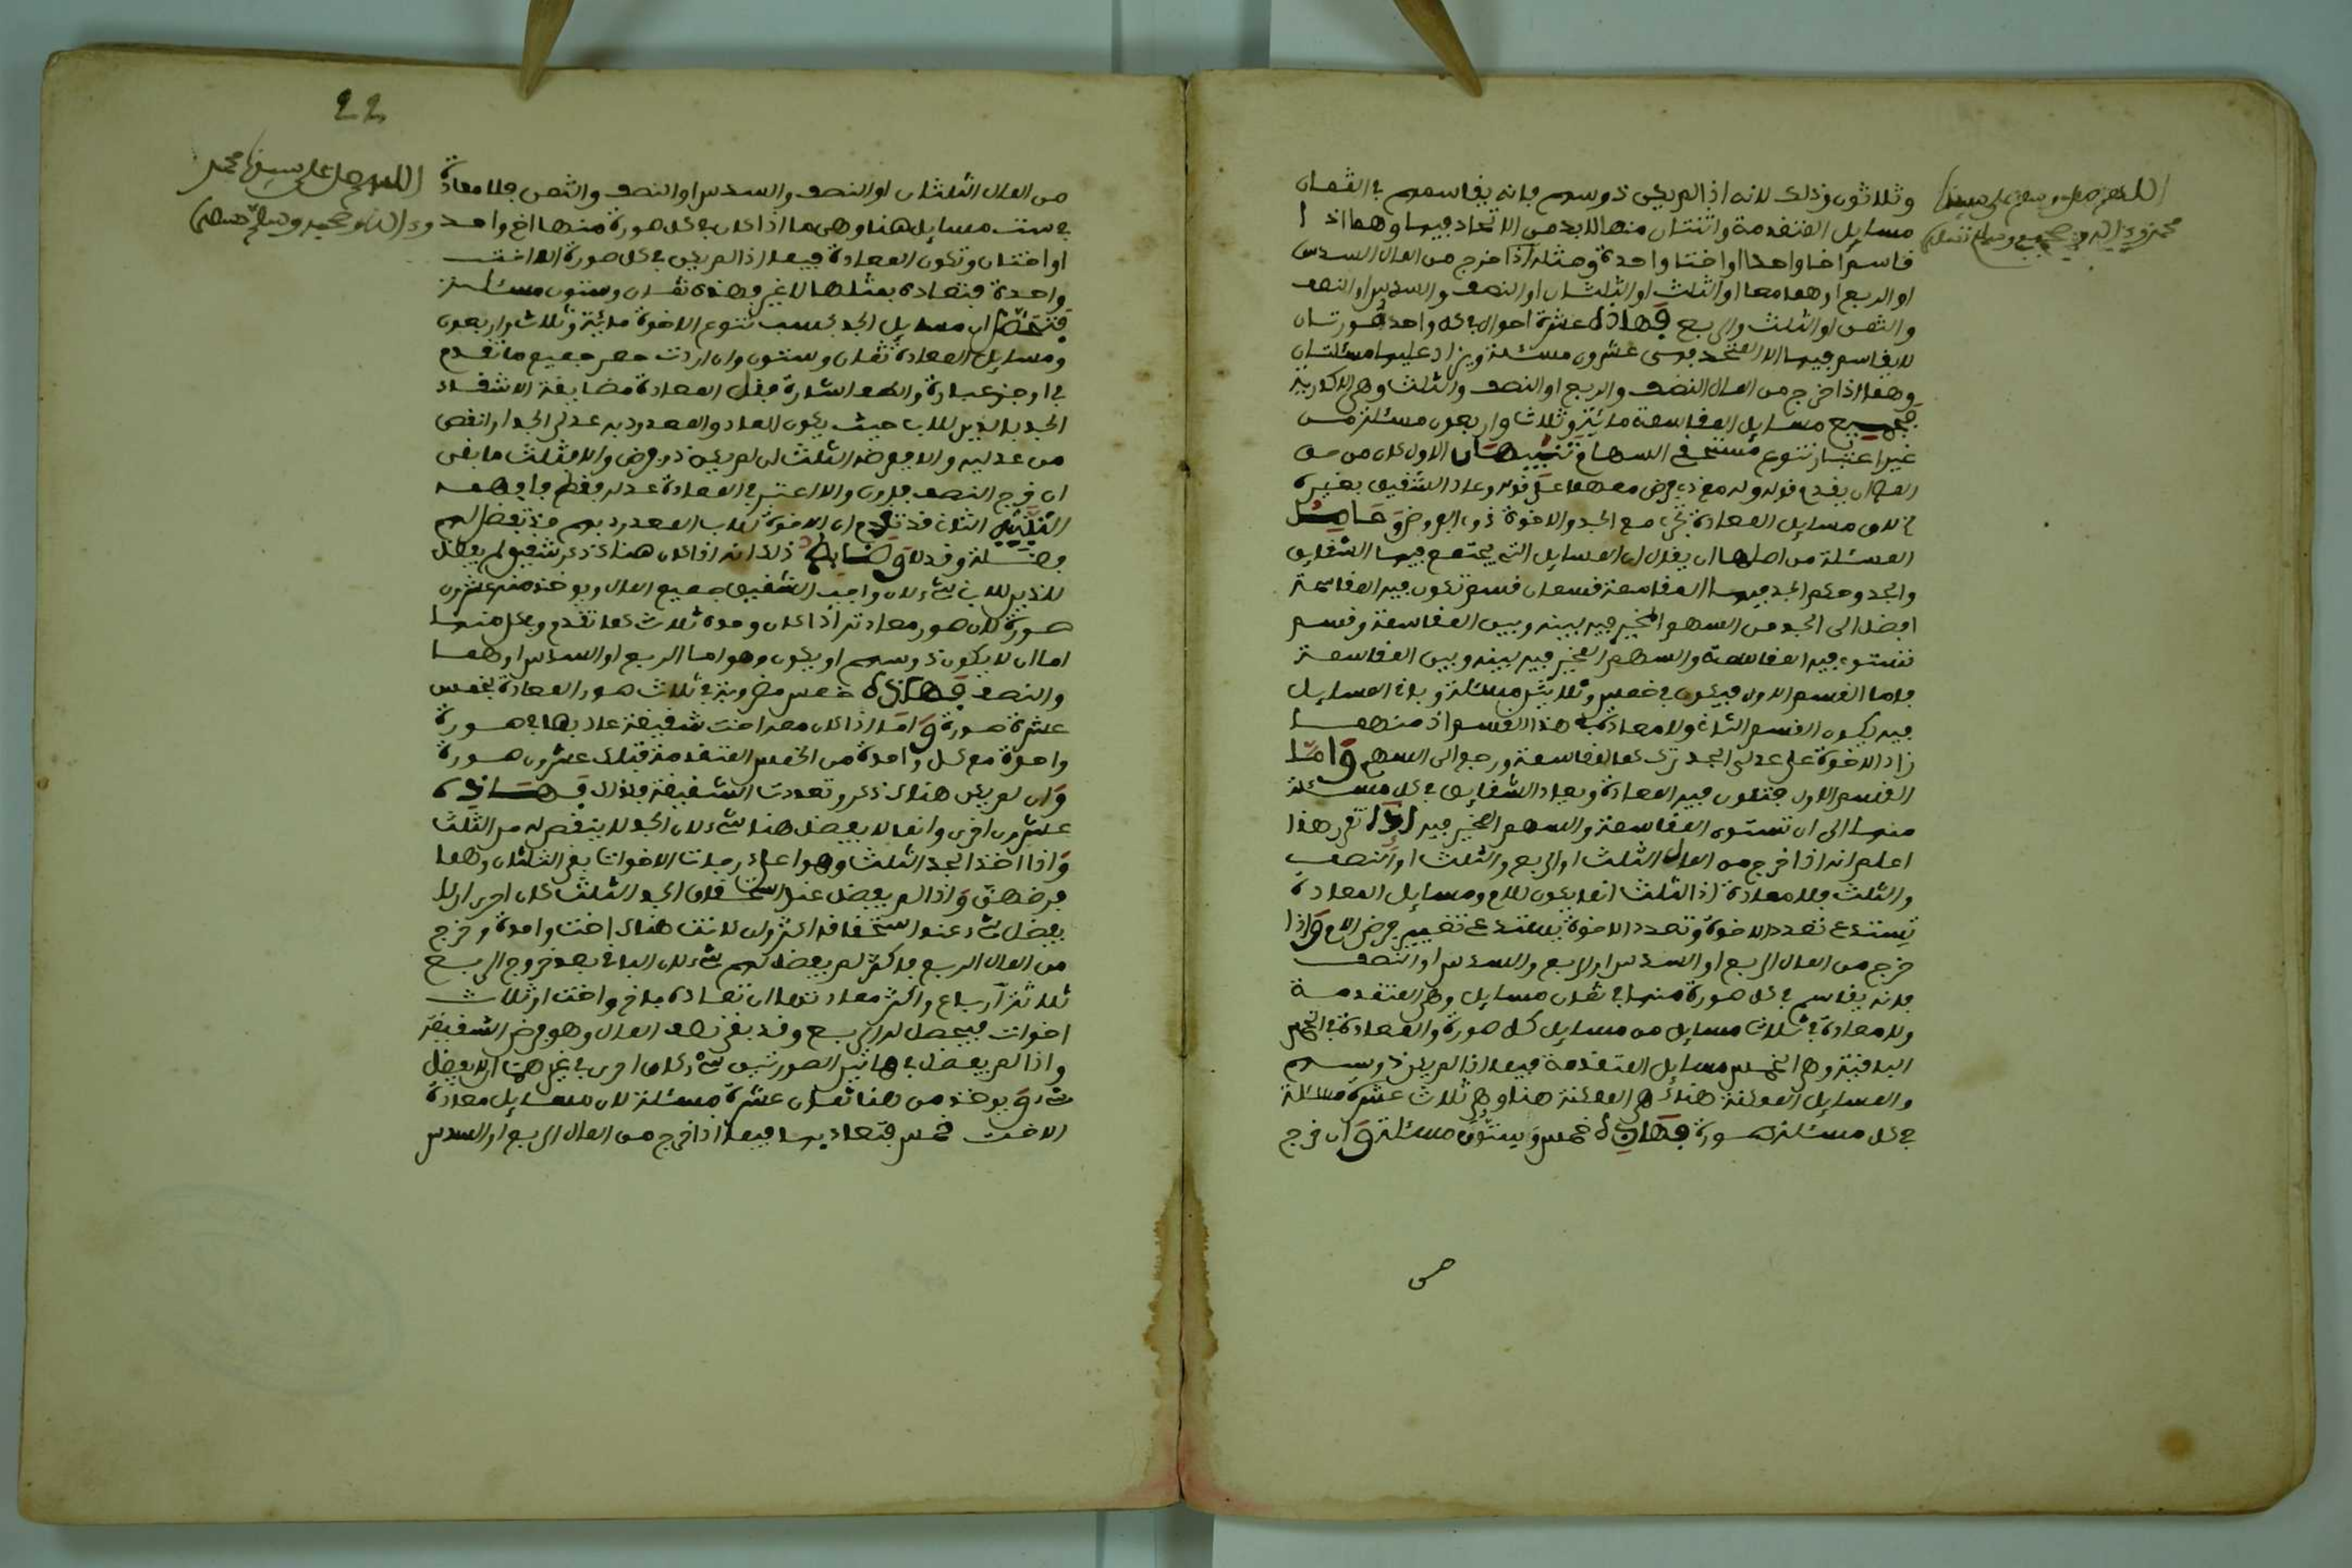 وثلاثون وذلك لانه اذا لم يكن ذو سهم فانه يقاسمهم في الثمان
مسايل المتقدمة واثنتان منها لا بد من الاتحاد فيها وهما اذا
قاسم اخا واحدا او اختا واحدة ومثله اذا خرج من المال السدس
او الربع او هما معا او الثلث او الثلثان او النصف والسدس او النصف
والثمن او الثلث والربع فهاذه عشرة احوال في كل واحد صورتان
لا يقاسم فيها الا المتحد فهي عشرون مسئلة ويزاد عليها مسئلتان
وهما اذا خرج من المال النصف والربع او النصف والثلث وهي الاكدرية
فجميع مسايل المقاسمة مائة وثلاث واربعون مسئلة من
غير اعتبار تنوع مستحقي السهام تنبيهان الاول كان من حق
المص ان يقدم قوله وله مع ذي فرض معهما على قوله وعاد الشقيق بغيره
لان مسايل المعادة تجري مع الجد والاخوة ذوي الفروض وحاصل
المسئلة من اصلها ان يقال ان المسايل التي يجتمع فيها الشقايق
والجد وحكم الجد فيها المقاسمة قسمان قسم تكون فيه المقاسمة
افضل الى الجد من السهم المخير فيه بينه وبين المقاسمة وقسم
تستوي فيه المقاسمة والسهم المخير فيه بينه وبين المقاسمة
فاما القسم الاول فيكون في خمس وثلاثين مسئلة وباقي المسايل
فيه يكون القسم الثاني ولا معادة في هذا القسم اذ منهما
زاد الاخوة على عدلي الجد ترك المقاسمة ورجع الى السهم واما
القسم الاول فتكون فيه المعادة ويعاد الشقايق في كل مسئلة
منها الى ان تستوي المقاسمة والسهم المخير فيه اذا تقرر هذا
اعلم انه اذا خرج من المال الثلث او الربع والثلث او النصف
والثلث فلا معادة اذ الثلث انما يكون للام ومسايل المعادة
تستدعي تعدد الاخوة وتعدد الاخوة يستدعي تغيير فرض الام واذا
خرج من المال الربع او السدس او الربع والسدس او النصف
فانه يقاسم في كل صورة منها في ثمان مسايل وهي المتقدمة
ولا معادة في ثلاث مسايل من مسايل كل صورة والمعادة في الخمس
الباقية وهي الخمس مسايل المتقدمة فيما اذا لم يكن ذو سهم
والمسايل الممكنة هناك هي الممكنة هنا وهي ثلاث عشرة مسئلة
في كل مسئلة صورة فهاذه خمس وستون مسئلة وان خرج
اللهم صل وسلم على سيدنا
محمد وءاله وصحبه وسلم تسليما
من المال الثلثان او النصف والسدس او النصف والثمن فلا معادة
في ست مسايل هنا وهي ما اذا كان في كل صورة منها اخ واحد
او اختان وتكون المعادة فيما اذا لم يكن في كل صورة الا اخت
واحدة فتعادة بمثلها لا غير فهذه ثمان وستون مسئلة
فتحصل ان مسايل الجد بحسب تنوع الاخوة مائة وثلاث واربعون
ومسايل المعادة ثمان وستون وان اردت حصر جميع ما تقدم
في اوجز عبارة والطف اشارة فقل المعادة مضايقة الاشقاء
الجد بالذين للاب حيث يكون العاد والمعدود به عدلي الجد او انقص
من عدليه والا ففرضه الثلث ان لم يكن ذو فرض والا فثلث ما بقي
ان خرج النصف فدون والا اعتبر في المعادة عدله فقط فافهمه
التنبيه الثاني قد تقدم ان الاخوة للاب المعدود بهم قد تفضل لهم
فضلة وقد لا وضابط ذلك انه اذا كان هناك ذكر شقيق لم يفضل
للذين للاب شيء لان واجب الشقيق جميع المال ويوخذ منه عشرون
صورة لان صور معادته اذا كان وحده ثلاث كما تقدم وكل منها
اما ان لا يكون ذو سهم او يكون وهو اما الربع او السدس او هما
والنصف فهاذه خمس مضروبة في ثلاث صور المعادة بخمس
عشرة صورة واما اذا كان معه اخت شقيقة عاد بها في صورة
واحدة مع كل واحدة من الخمس المتقدمة فتلك عشرون صورة
وان لم يكن هناك ذكر وتعددت الشقيقة فكذلك فهاذه
عشرون اخرى وانما لا يفضل هنا شيء لان الجد لا ينقص له من الثلث
واذا اخذ الجد الثلث وهو اعلى رجاته الاخوات بقي الثلثان وهما
فرضهن واذا لم يفضل عند استحقاق الجد الثلث كان احرى ان لا
يفضل شيء عند استحقاقه اكثر وان كانت هناك اخت واحدة وخرج
من المال الربع فاكثر لم يفضل لهم شيء لان الباقي بعد خروج الربع
ثلاثة ارباع واكثر معادتها ان تعاده باخ واخت او ثلاث
اخوات فيحصل له الربع وقد بقي نصف المال وهو فرض الشقيقة
واذا لم يفضل في هاتين الصورتين شيء كان احرى في غيرهما ان لا يفضل
شيء ويوخذ من هنا ثمان عشرة مسئلة لان مسايل معادة
الاخت خمس فتعاد بها فيما اذا خرج من المال الربع او السدس
اللهم صل على سيدنا محمد
وءاله وصحبه وسلم تسليما